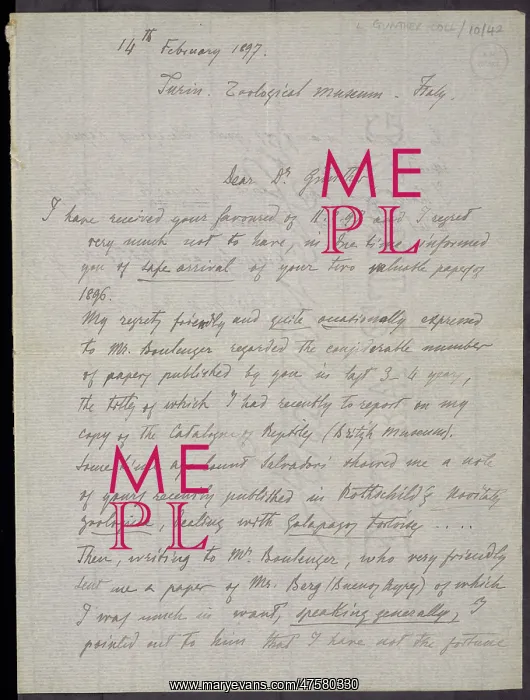 L GUNTHER COLL / 10/42
14th February 1897.
Turin. Zoological Museum - Italy.
Dear Dr
ME
PL
I have received your favoured of and I regret
very much not to have, in due time informed
you of safe arrival of your two valuable papers of
1896.
My regrets friendly and quite occationally expressed
to Mr. Boulenger regarded the considerable number
of papers published by you in last 3_4 years,
the titles of which I had recently to report on my
copy of the Catalogue of Reptiles (British Museum).
Some ago Count Salvadori showed me a note
ME
PL
of yours recently published in Rothschild's Novitates
Zoologicae, dealing with Galapagos tortoises ....
Then, writing to Mr Boulenger, who very friendly
sent me a paper of Mr. Berg (Buenos Ayres) of which
I was much in want, speaking generally, I
pointed out to him that I have not the fortune
www.maryevans.com/47580330